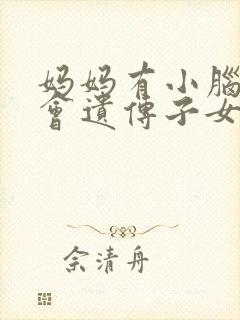 妈妈有小腦
會遺傳子女
佘清舟